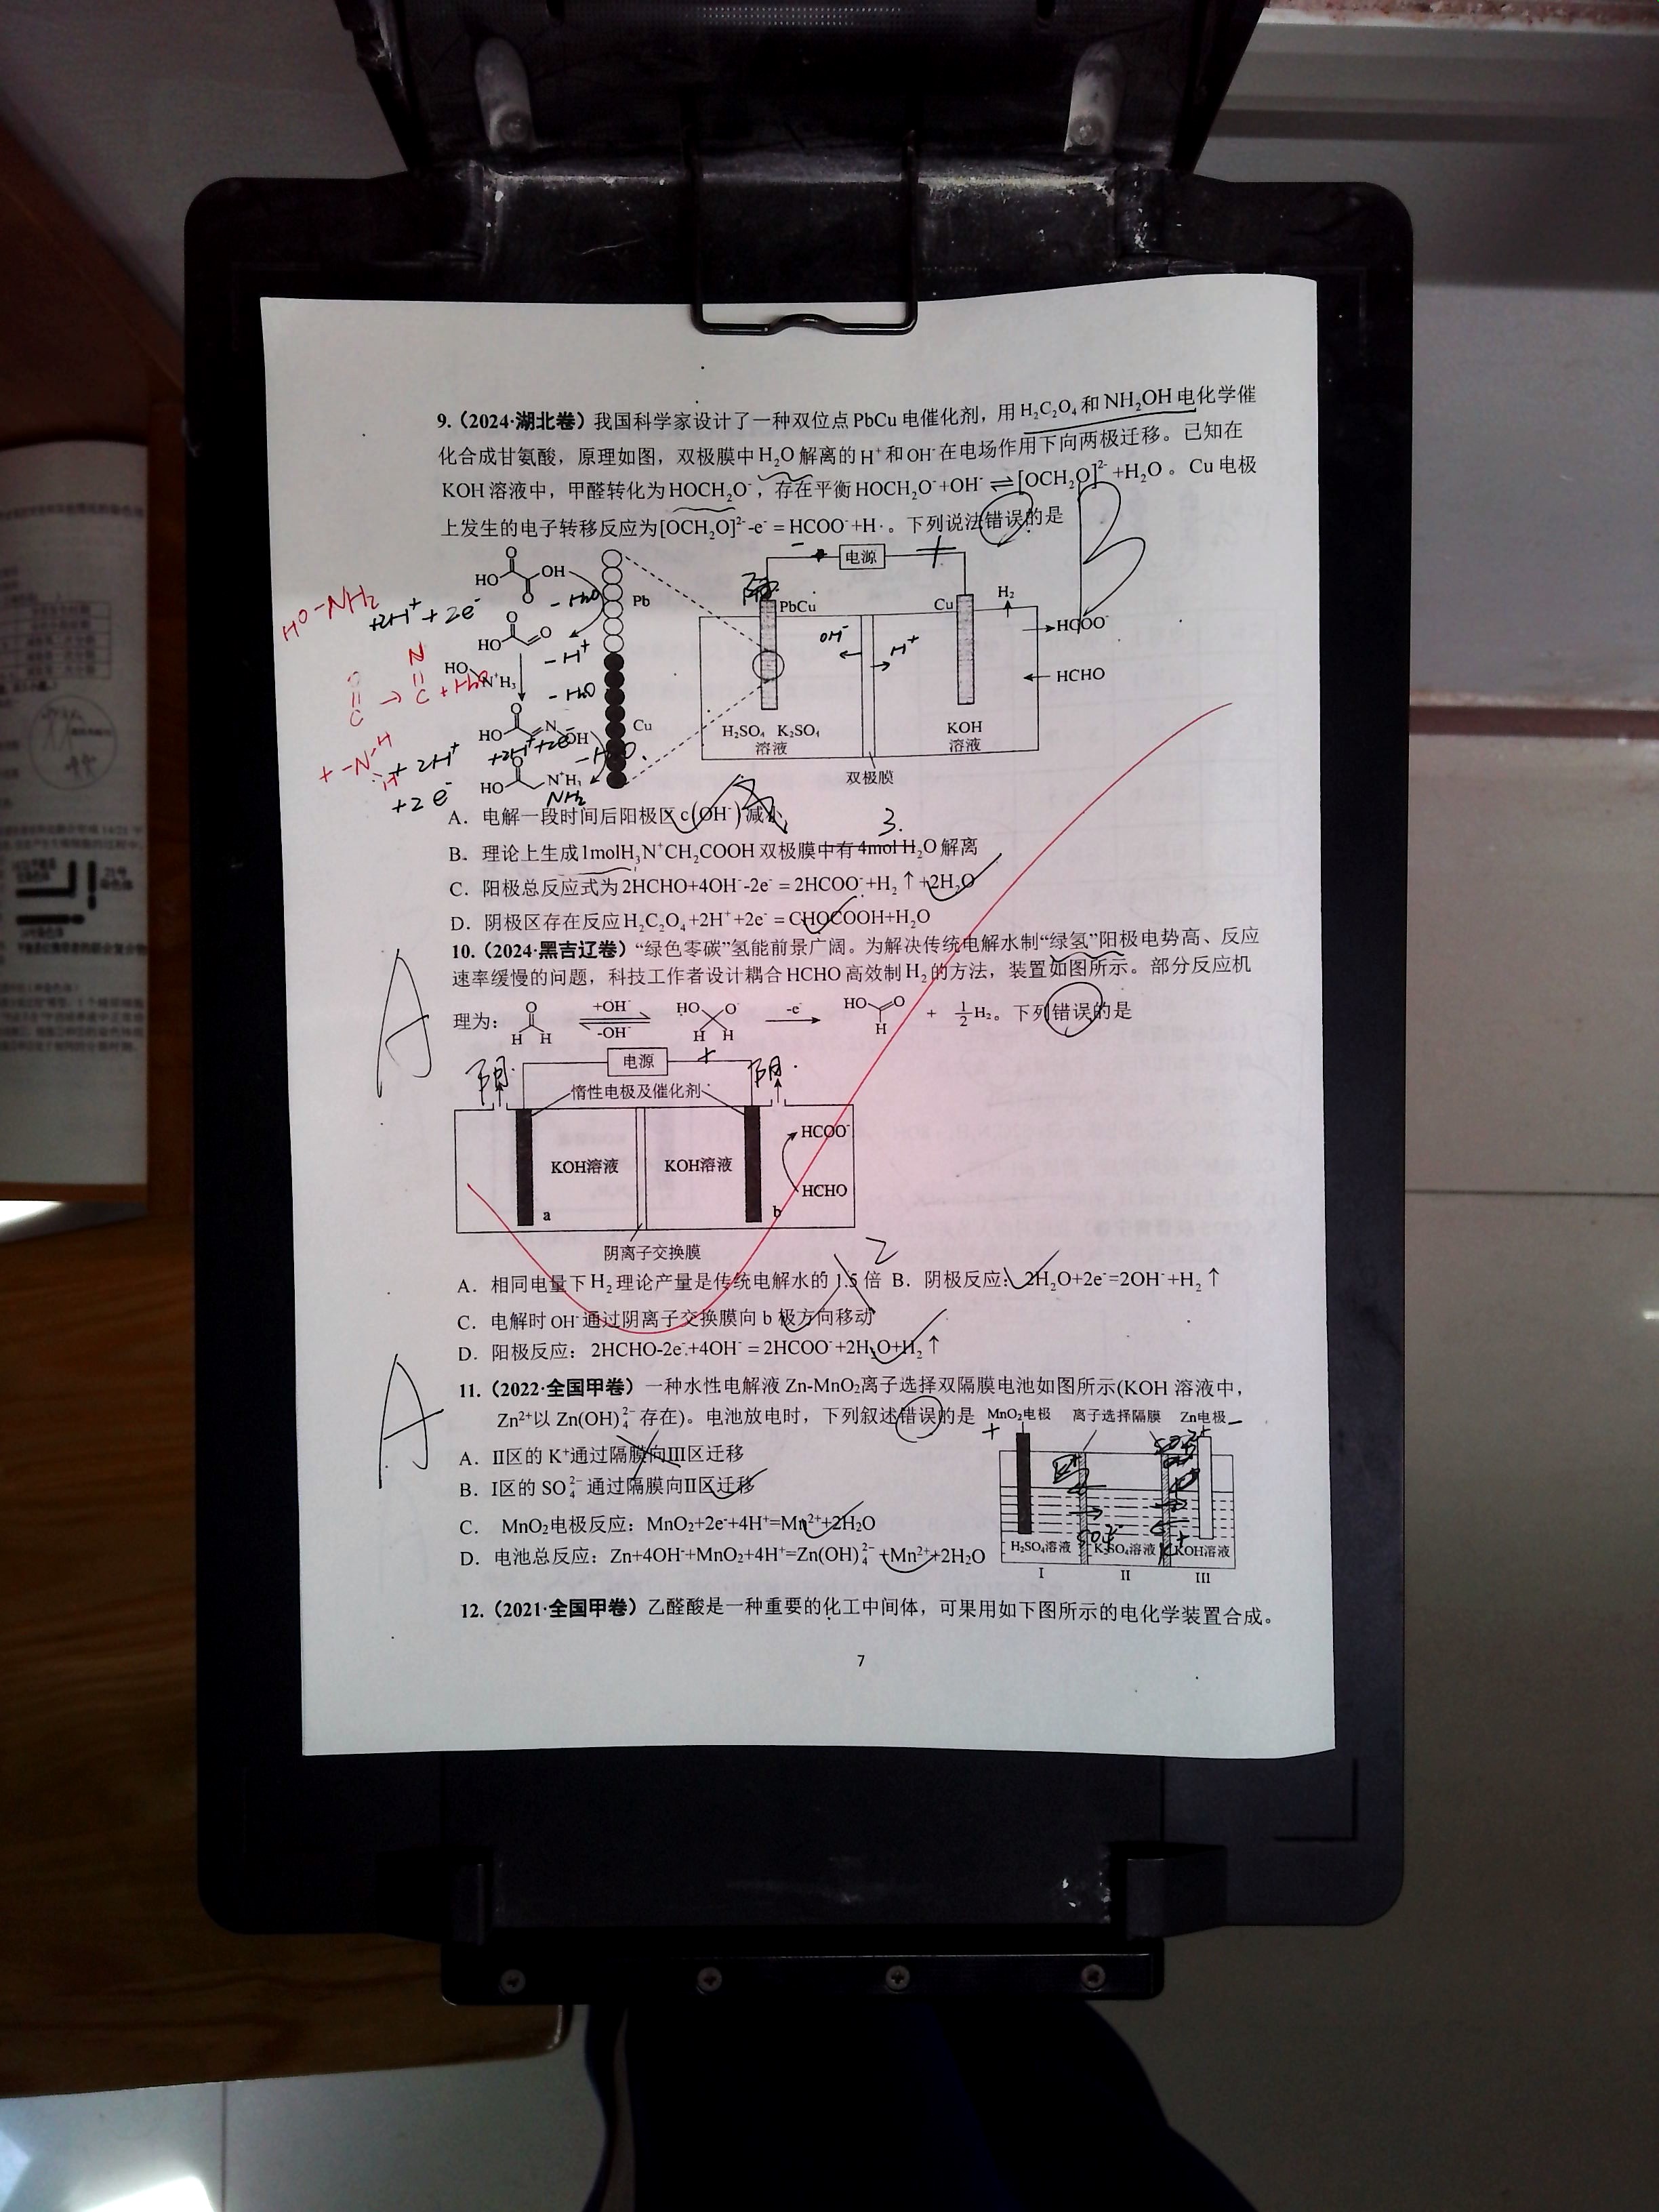 9.（2024·湖北卷）我国科学家设计了一种双位点PbCu电催化剂，用H₂C₂O₄和NH₂OH电化学催
化合成甘氨酸，原理如图，双极膜中H₂O解离的H⁺和OH⁻在电场作用下向两极迁移。已知在
KOH溶液中，甲醛转化为HOCH₂O⁻，存在平衡HOCH₂O⁻+OH⁻⇌[OCH₂O]²⁻+H₂O。Cu电极
上发生的电子转移反应为[OCH₂O]²⁻-e⁻=HCOO⁻+H·。下列说法错误的是
B
HO-NH₂
+2H⁺+2e⁻
-H₂O
HO
O
OH
O
Pb
HO
O
O
-H⁺
HO
N⁺H₃
-H₂O
N
=
C
→
C
+H₂O
HO
O
N
OH
Cu
+2H⁺+2e⁻
-H₂O
+2H⁺
+2e⁻
HO
O
N⁺H₃
NH₂
- 电源 +
PbCu
Cu
H₂
OH⁻
H⁺
HCOO⁻
HCHO
H₂SO₄ K₂SO₄
溶液
KOH
溶液
双极膜
A．电解一段时间后阳极区c(OH⁻)减小
3.
B．理论上生成1molH₃N⁺CH₂COOH双极膜中有4mol H₂O解离
C．阳极总反应式为2HCHO+4OH⁻-2e⁻=2HCOO⁻+H₂↑+2H₂O
D．阴极区存在反应H₂C₂O₄+2H⁺+2e⁻=CHOCOOH+H₂O
A
10.（2024·黑吉辽卷）“绿色零碳”氢能前景广阔。为解决传统电解水制“绿氢”阳极电势高、反应
速率缓慢的问题，科技工作者设计耦合HCHO高效制H₂的方法，装置如图所示。部分反应机
理为：
O
H H
+OH⁻
-OH⁻
HO O⁻
H H
-e⁻
HO O
H
+ ½H₂。下列错误的是
阴
电源
+
阳
惰性电极及催化剂
KOH溶液
KOH溶液
HCOO⁻
HCHO
a
b
阴离子交换膜
2
A．相同电量下H₂理论产量是传统电解水的1.5倍 B．阴极反应：2H₂O+2e⁻=2OH⁻+H₂↑
C．电解时OH⁻通过阴离子交换膜向b极方向移动
D．阳极反应：2HCHO-2e⁻+4OH⁻=2HCOO⁻+2H₂O+H₂↑
A
11.（2022·全国甲卷）一种水性电解液Zn-MnO₂离子选择双隔膜电池如图所示(KOH溶液中，
Zn²⁺以Zn(OH)₄²⁻存在)。电池放电时，下列叙述错误的是
MnO₂电极 离子选择隔膜 Zn电极
+ -
A．II区的K⁺通过隔膜向III区迁移
B．I区的SO₄²⁻通过隔膜向II区迁移
C． MnO₂电极反应：MnO₂+2e⁻+4H⁺=Mn²⁺+2H₂O
D．电池总反应：Zn+4OH⁻+MnO₂+4H⁺=Zn(OH)₄²⁻+Mn²⁺+2H₂O
H₂SO₄溶液 K₂SO₄溶液 KOH溶液
I II III
12.（2021·全国甲卷）乙醛酸是一种重要的化工中间体，可果用如下图所示的电化学装置合成。
7